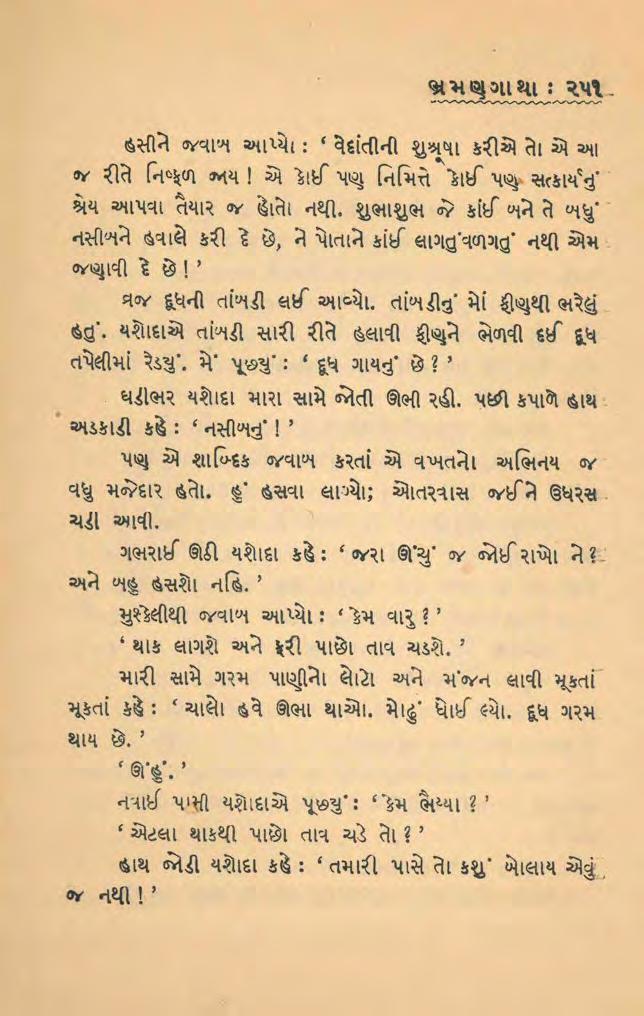 ભ્રમણગાથા : ૨૫૧
હસીને જવાબ આપ્યો : ‘ વેદાંતીની શુશ્રૂષા કરીએ તો એ આ
જ રીતે નિષ્ફળ જાય ! એ કોઈ પણ નિમિત્તે કોઈ પણ સત્કાર્યનું
શ્રેય આપવા તૈયાર જ હોતો નથી. શુભાશુભ જે કાંઈ બને તે બધું
નસીબને હવાલે કરી દે છે, ને પોતાને કાંઈ લાગતુંવળગતું નથી એમ
જણાવી દે છે ! ’
વ્રજ દૂધની તાંબડી લઈ આવ્યો. તાંબડીનું મોં ફીણથી ભરેલું
હતું. યશોદાએ તાંબડી સારી રીતે હલાવી ફીણને ભેળવી દઈ દૂધ
તપેલીમાં રેડ્યું. મેં પૂછ્યું : ‘ દૂધ ગાયનું છે ? ’
ઘડીભર યશોદા મારા સામે જોતી ઊભી રહી. પછી કપાળે હાથ
અડકાડી કહે : ‘ નસીબનું ! ’
પણ એ શાબ્દિક જવાબ કરતાં એ વખતનો અભિનય જ
વધુ મજેદાર હતો. હું હસવા લાગ્યો; ઓતરવાસ જઈને ઉધરસ
ચડી આવી.
ગભરાઈ ઊઠી યશોદા કહે : ‘ જરા ઊંચું જ જોઈ રાખો ને ?
અને બહુ હસશો નહિ. ’
મુશ્કેલીથી જવાબ આપ્યો : ‘ કેમ વારુ ? ’
‘ થાક લાગશે અને ફરી પાછો તાવ ચડશે. ’
મારી સામે ગરમ પાણીનો લોટો અને મંજન લાવી મૂકતાં
મૂકતાં કહે : ‘ ચાલો હવે ઊભા થાઓ. મોઢું ધોઈ લ્યો. દૂધ ગરમ
થાય છે. ’
‘ ઊંહું. ’
નવાઈ પામી યશોદાએ પૂછ્યું : ‘ કેમ ભૈય્યા ? ’
‘ એટલા થાકથી પાછો તાવ ચડે તો ? ’
હાથ જોડી યશોદા કહે : ‘ તમારી પાસે તો કશું બોલાય એવું
જ નથી ! ’